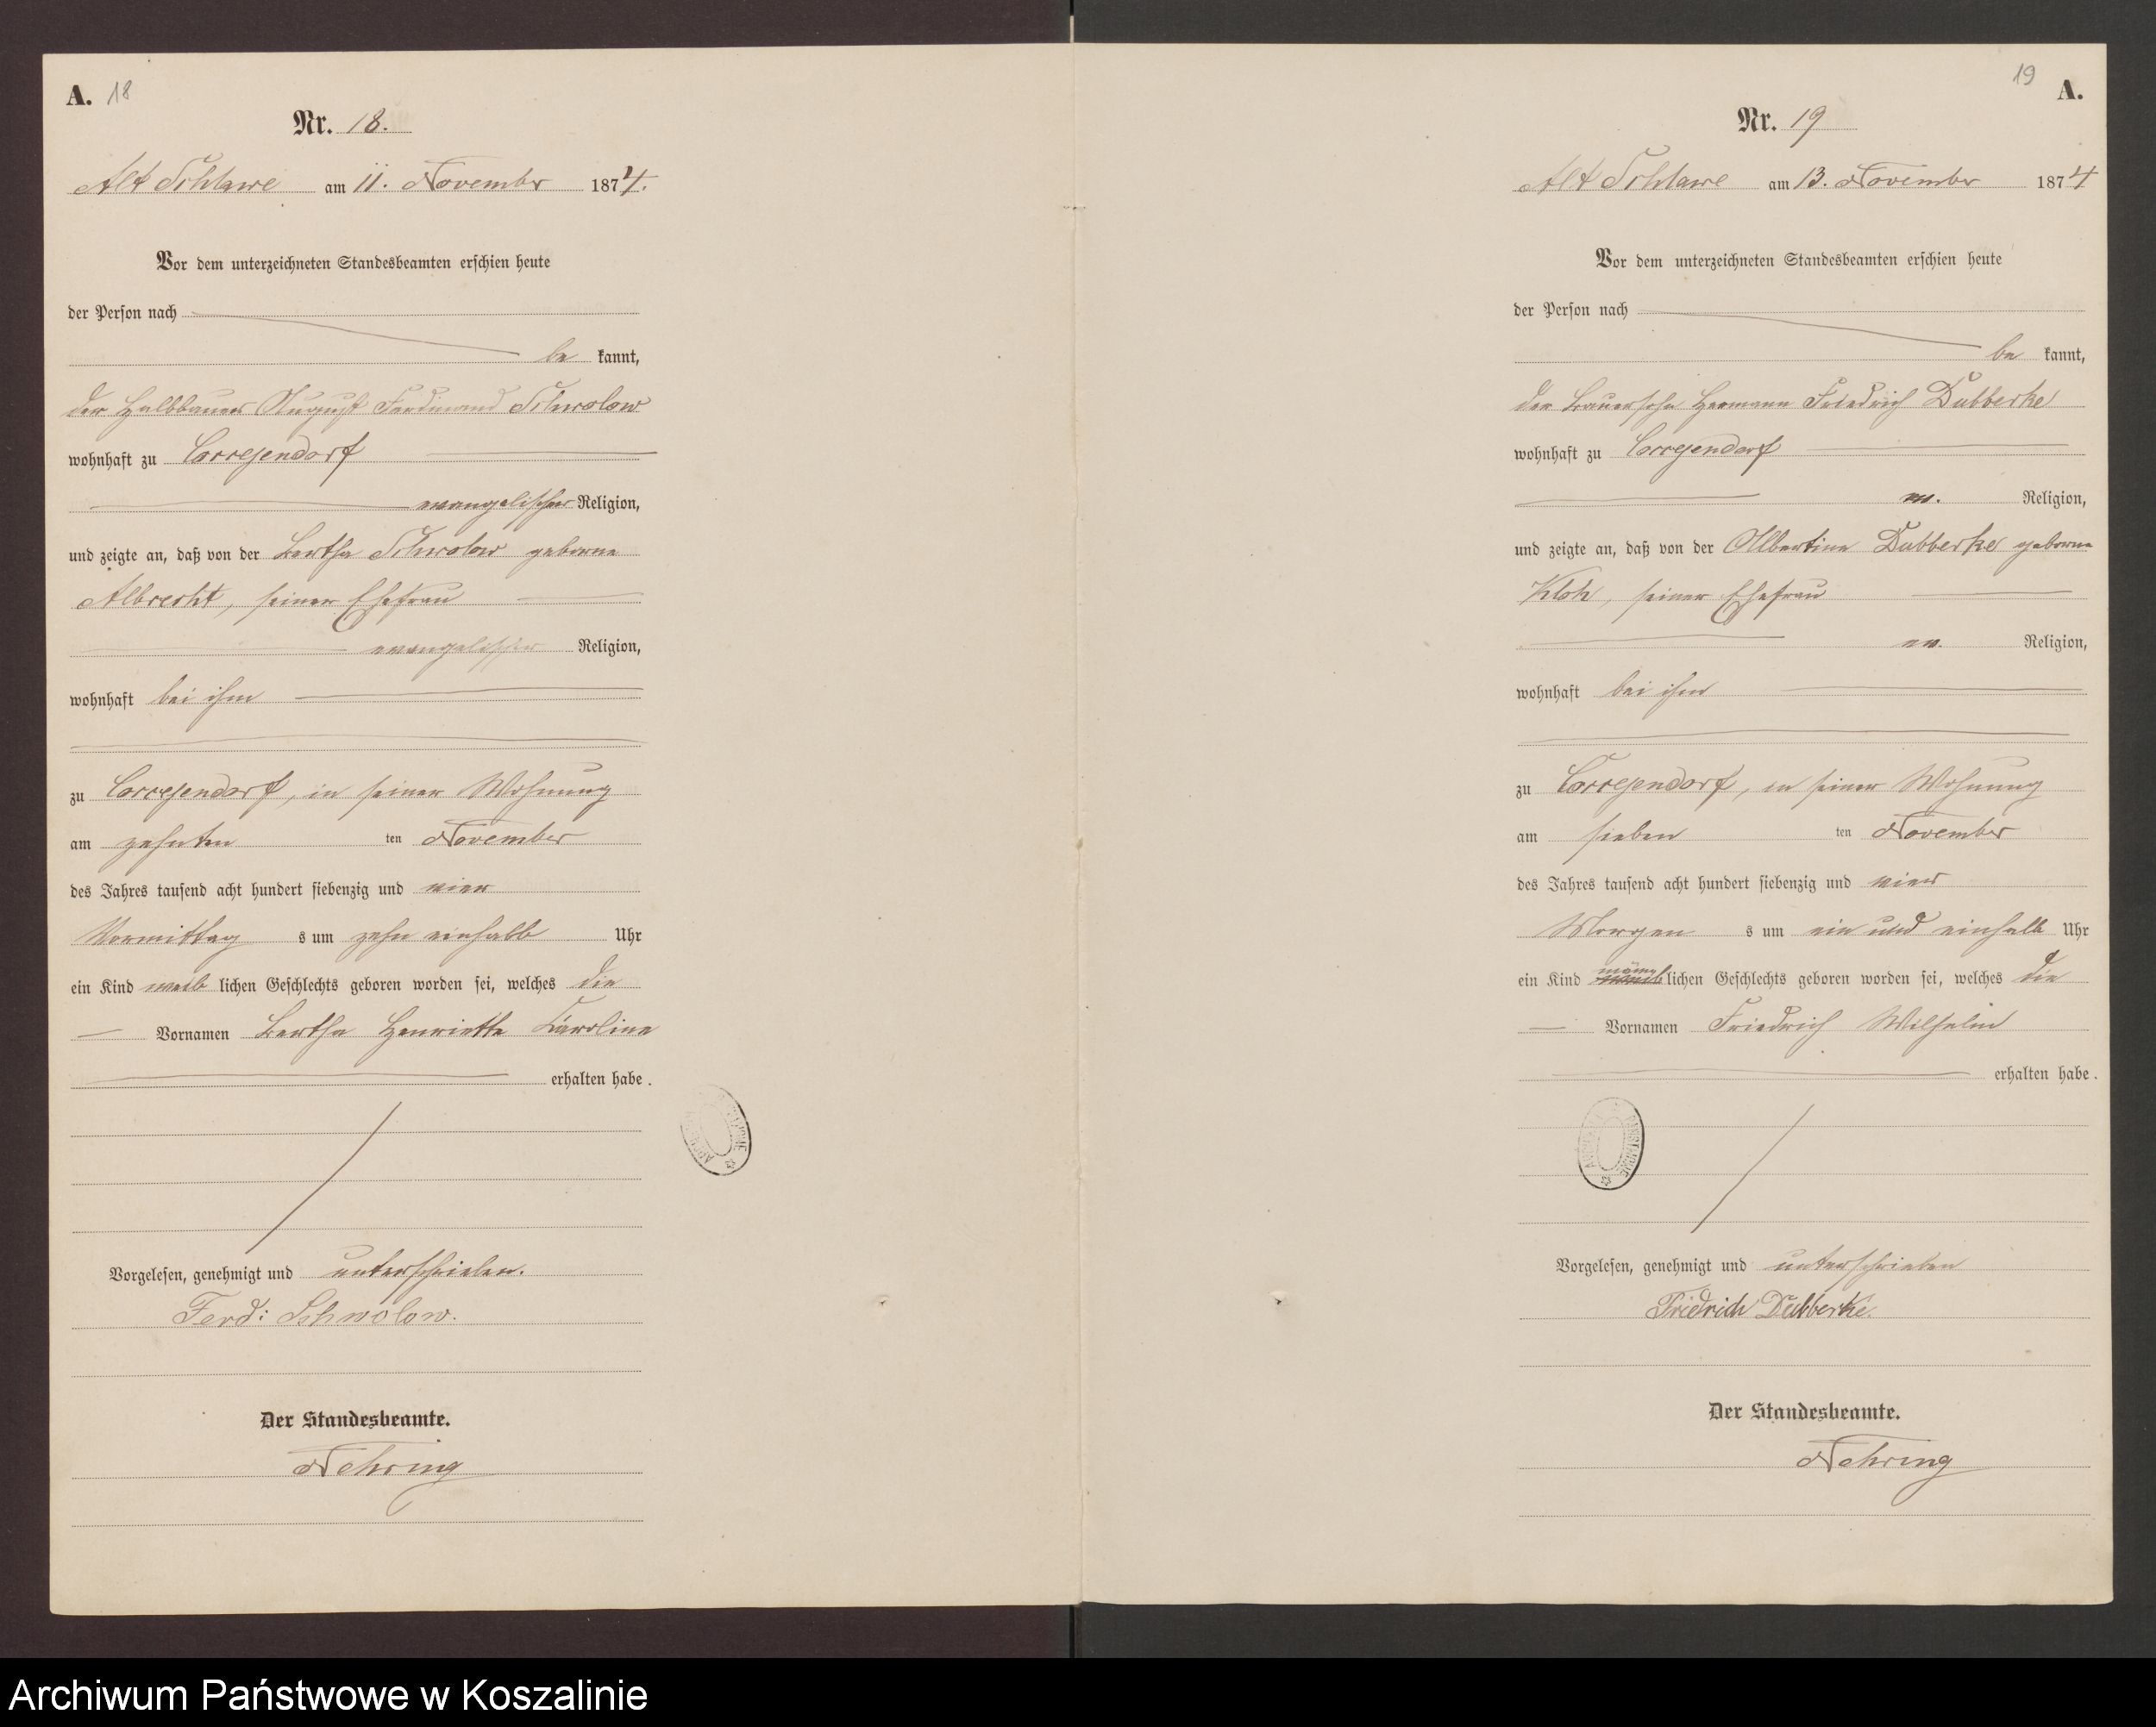 A. 18
Nr. 18.
Alt Schlawe am 11. November 1874.
Vor dem unterzeichneten Standesbeamten erschien heute
der Person nach
be kannt,
der Halbbauer August Ferdinand Schwolow
wohnhaft zu Correjendorf
evangelischer Religion,
und zeigte an, daß von der Bertha Schwolow geborne
Albrecht, seiner Ehefrau
evangelischer Religion,
wohnhaft bei ihm
zu Correjendorf, in seiner Wohnung
am zehnten ten November
des Jahres tausend acht hundert siebenzig und vier
Vormittag s um zehn einhalb Uhr
ein Kind weib lichen Geschlechts geboren worden sei, welches die
Vornamen Bertha Henriette Karoline
erhalten habe.
Vorgelesen, genehmigt und unterschrieben.
Ferd: Schwolow.
Der Standesbeamte.
Nehring
19 A.
Nr. 19
Alt Schlawe am 13. November 1874
Vor dem unterzeichneten Standesbeamten erschien heute
der Person nach
be kannt,
der Bauersohn Hermann Friedrich Dubberke
wohnhaft zu Correjendorf
ev. Religion,
und zeigte an, daß von der Albertine Dubberke geborne
seiner Ehefrau
ev. Religion,
wohnhaft bei ihm
zu Correjendorf, in seiner Wohnung
am sieben ten November
des Jahres tausend acht hundert siebenzig und vier
Morgen s um ein und einhalb Uhr
ein Kind männ lichen Geschlechts geboren worden sei, welches die
Vornamen Friedrich Wilhelm
erhalten habe.
Vorgelesen, genehmigt und unterschrieben
Friedrich Dubberke.
Der Standesbeamte.
Nehring
Archiwum Państwowe w Koszalinie